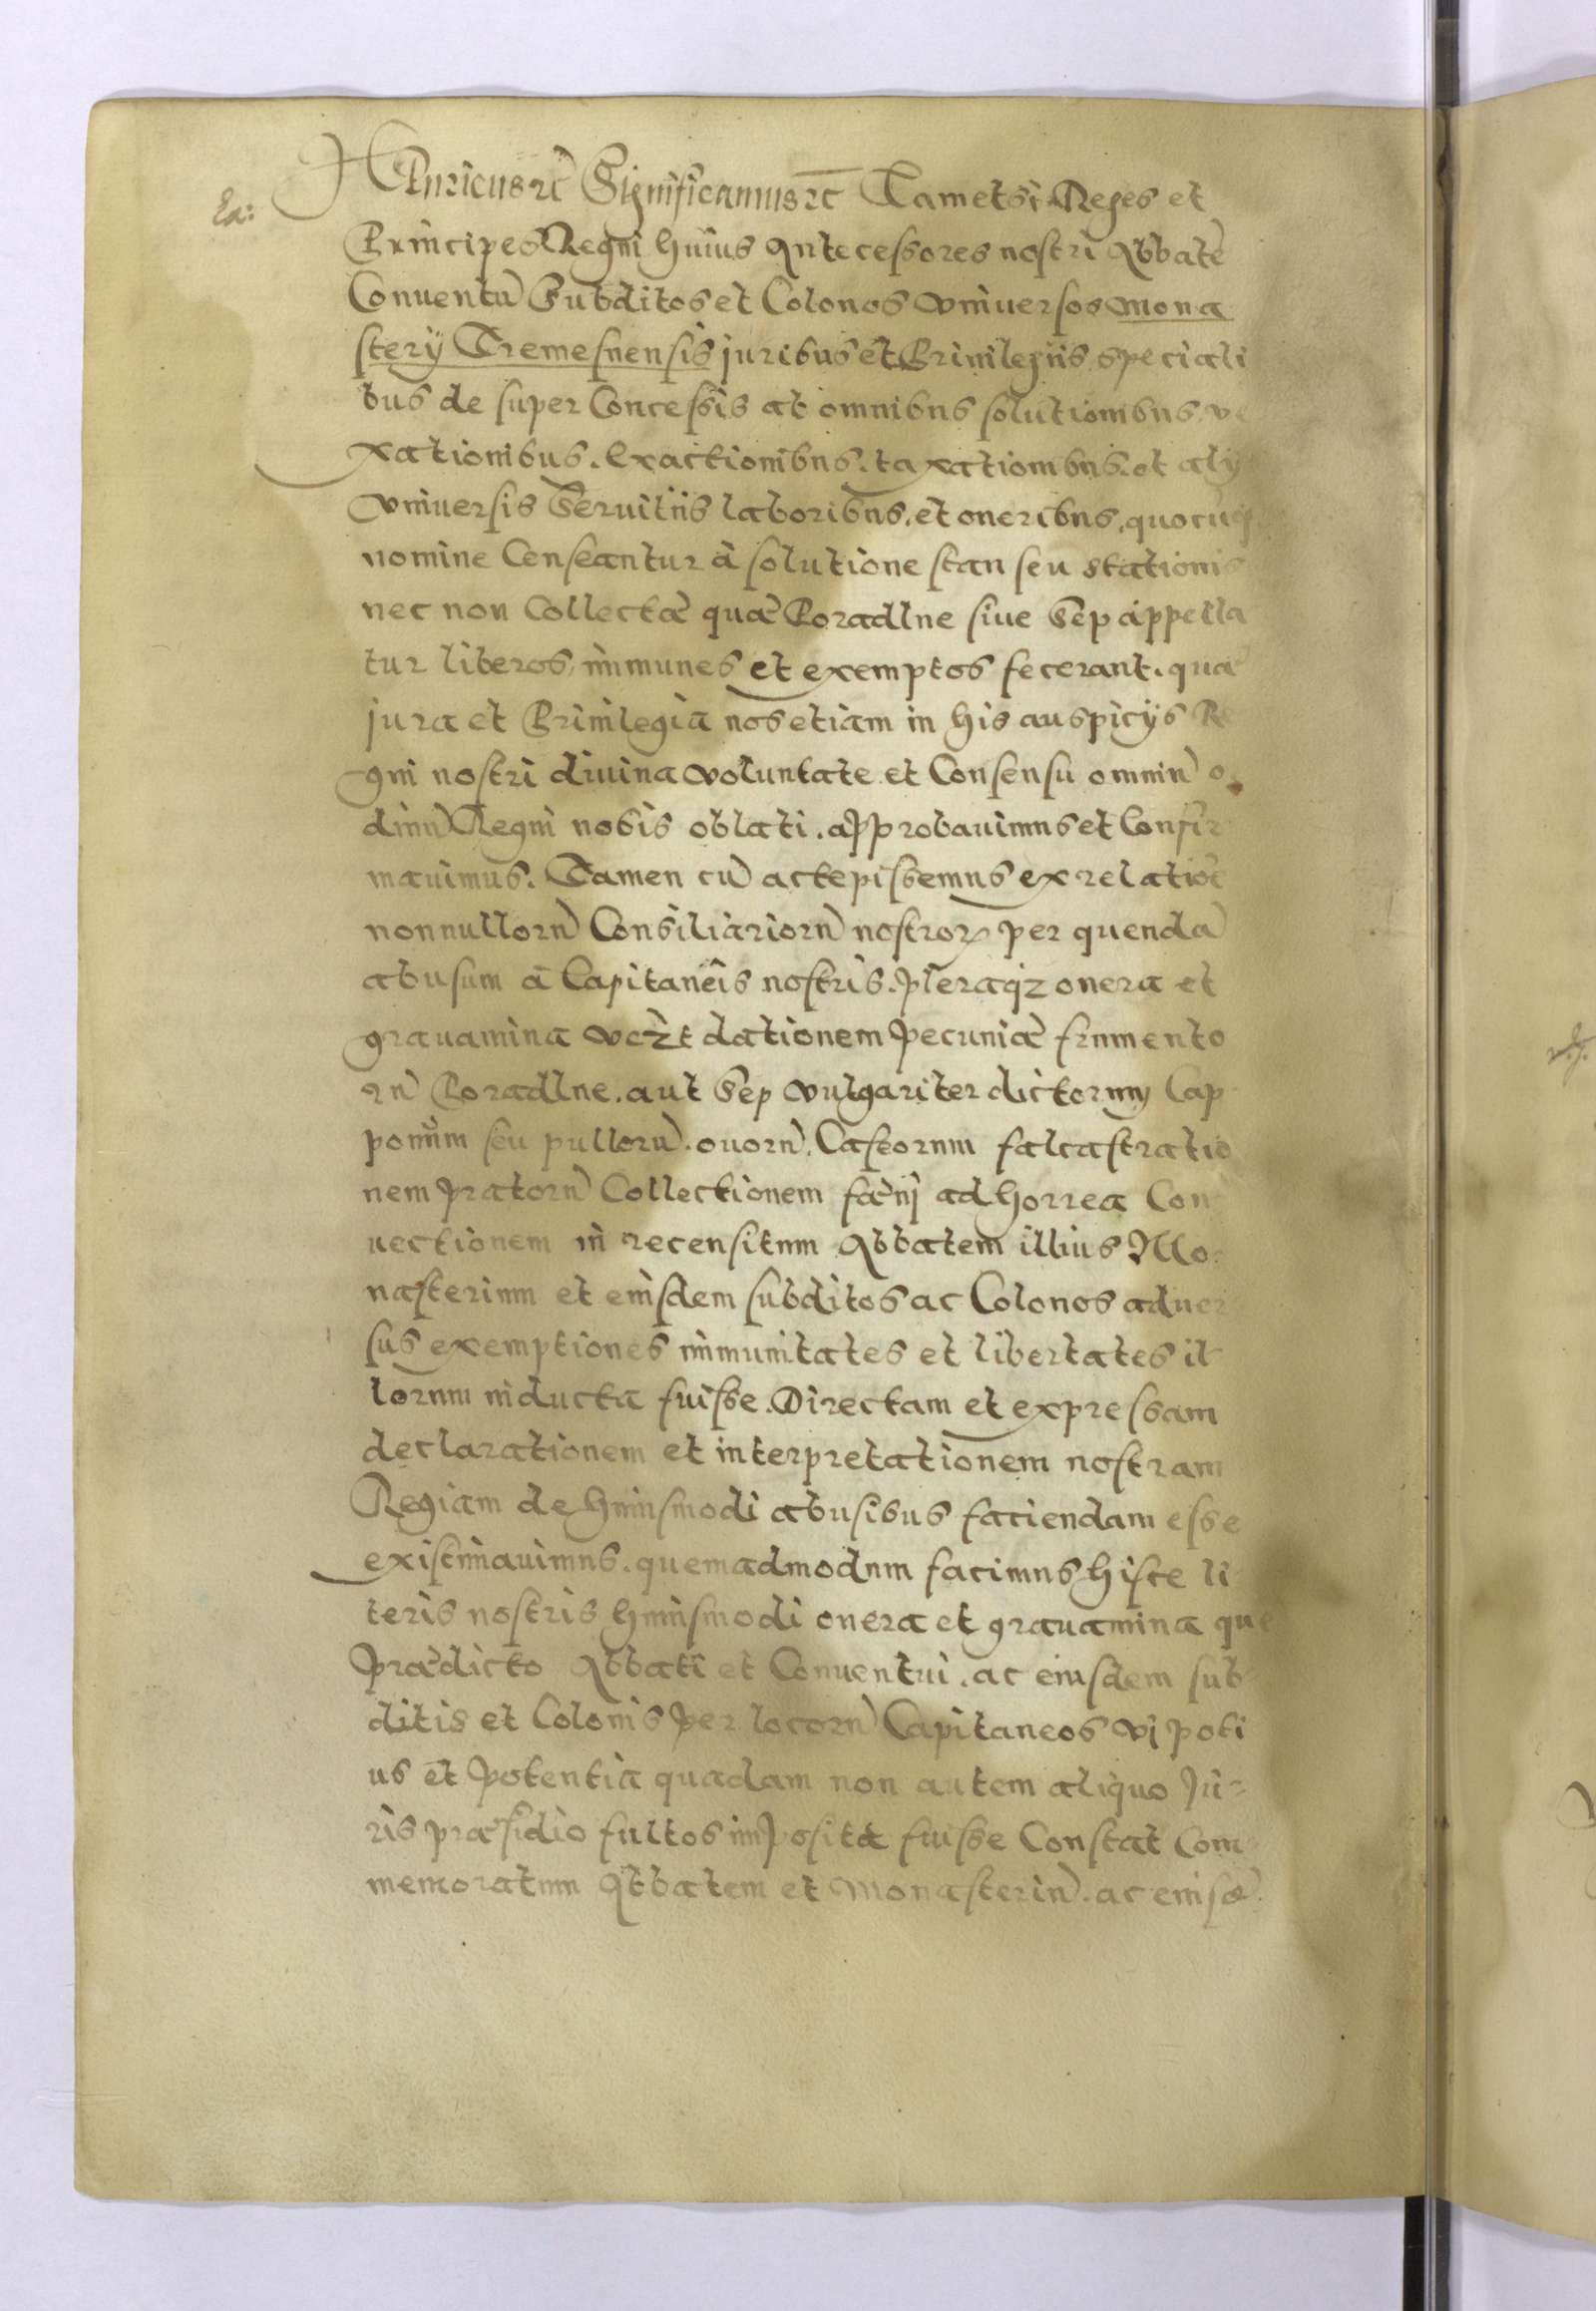 Ea:
HEnricus etc Significamus etc Tametsi Reges et
Principes Regni huius Antecessores nostri Abbatē
Conuentū Subditos et Colonos vniuersos Mona
stery Tremesnensis juribus et Priuilegiis speciali
bus de super Concessis ab omnibus solutionibus. ve
xationibus. exactionibus. taxationibus. et alys
vniuersis Seruitiis laboribus. et oneribus. quocūq
nomine Censeantur à solutione stan seu stationis
nec non Collectæ quæ Poradlne siue Sep appella
tur liberos immunes et exemptos fecerant. quæ
jura et Priuilegia nos etiam in his auspicÿs Re
gni nostri diuina voluntate et Consensu omniū or
dinū Regni nobis oblati. approbauimus et Confir
mauimus. Tamen cū accepissemus ex relatiōe
nonnullorū Consiliariorū nostroꝝ per quendā
abusum à Capitaneîs nostris. pleraqz onera et
grauamina vczt dationem pecuniæ frumento
rū Poradlne. aut Sep vulgariter dictorum Cap
ponum seu pullorū. ouorū. Caseorum falcastratio
nem pratorū Collectionem fænj ad horrea Con
uectionem in recensitum Abbatem illius Mo
nasterium et eiusdem subditos ac Colonos aduer
sus exemptiones immunitates et libertates il
lorum inducta fuisse. Directam et expressam
declarationem et interpretationem nostram
Regiam de huiusmodi abusibus faciendam esse
existimauimus. quemadmodum facimus hisce li
teris nostris huiusmodi onera et grauamina que
prædicto Abbati et Conuentui. ac eiusdem sub
ditis et Colonis per locorū Capitaneos vj poti
us et potentia quadam non autem aliquo Ju=
ris præsidio fultos imposita fuisse Constat Com
memoratum Abbatem et Monasteriū. ac eiusdē